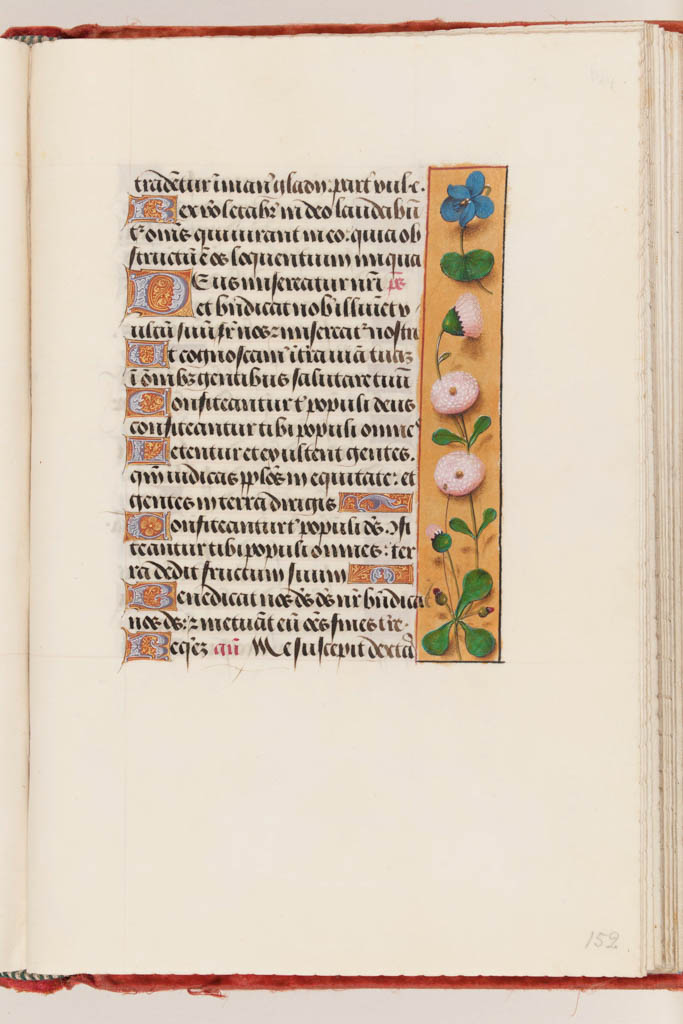 tradētur ī man᷒ gladii: part᷒ vulꝑ.
Rex vo letabit᷒ in deo laudabūt᷒
t᷒ oms qui iurant in eo: quia ob
structū ē os loquentium iniqua
Deus misereatur nr̄i ps
et bn̄dicat nobis illumīet v
ultū suū sr̄ nos ⁊ misereat᷒ nostri
Ut cognoscam᷒ ī tr̄a viā tuaꝫ
ī omībꝫ gentibus salutare tuū
Confiteantur t᷒ populi deus
confiteantur tibi populi omnes
Letentur et exultent gentes.
qm̄ iudicas pp̄los in equitate: et
gentes in terra dirigis
Confiteantur t᷒ populi ds̄. ꝯfi
teantur tibi populi omnes: ter
ra dedit fructum suum
Benedicat nos ds̄ ds̄ nr̄ bn̄dicat
nos ds̄: ⁊ metuāt eū oēs fines tr̄e.
Reqꝫ añ Me suscepit dextā
152